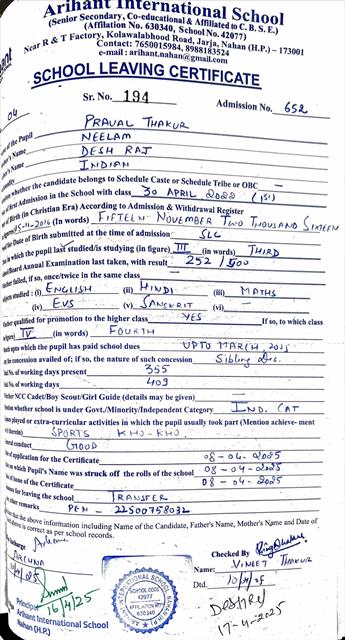 Arihant International School
(Senior Secondary, Co-educational & Affiliated to C. B. S. E.)
(Affiliation No. 630340, School No. 42077)
Near R & T Factory, Kolawalabhood Road, Jarja, Nahan (H.P.) – 173001
Contact: 7650015984, 8988183524
e-mail : arihant.nahan@gmail.com
SCHOOL LEAVING CERTIFICATE
Sr. No. 194
Admission No. 652
of the Pupil PRAVAL THAKUR
Name NEELAM
Name DESH RAJ
INDIAN
whether the candidate belongs to Schedule Caste or Schedule Tribe or OBC —
first Admission in the School with class 30 APRIL 2022 (1st)
Birth (in Christian Era) According to Admission & Withdrawal Register
15-11-2016 (In words) FIFTEEN NOVEMBER TWO THOUSAND SIXTEEN
Date of Birth submitted at the time of admission SLC
in which the pupil last studied/is studying (in figure) III (in words) THIRD
Board Annual Examination last taken, with result 252/500
failed, if so, once/twice in the same class —
studied : (i) ENGLISH (ii) HINDI (iii) MATHS
(iv) EVS (v) SANSKRIT (vi) —
qualified for promotion to the higher class YES If so, to which class
IV (in words) FOURTH
upto which the pupil has paid school dues UPTO MARCH, 2025
concession availed of; if so, the nature of such concession Sibling Dis.
No. of working days present 355
No. of working days 409
NCC Cadet/Boy Scout/Girl Guide (details may be given) —
whether school is under Govt./Minority/Independent Category IND. CAT
played or extra-curricular activities in which the pupil usually took part (Mention achieve- ment
therein) SPORTS KHO-KHO
conduct GOOD
of application for the Certificate 08-04-2025
on which Pupil's Name was struck off the rolls of the school 08-04-2025
of issue of the Certificate 08-04-2025
for leaving the school TRANSFER
remarks PEN - 22500758032
that the above information including Name of the Candidate, Father's Name, Mother's Name and Date of
above is correct as per school records.
Checked By
Name: VINEET THAKUR
Dtd.
Principal
16/4/25
Arihant International School
Nahan (H.P.)
SCHOOL CODE
42077
AFFILIATION NO.
630340
17-4-2025